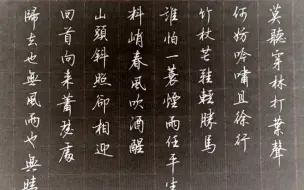 莫聽穿林打葉聲
何妨吟嘯且徐行
竹杖芒鞋輕勝馬
誰怕一蓑煙雨任平生
料峭春風吹酒醒
山頭斜照卻相迎
回首向來蕭瑟處
歸去也無風雨也無晴